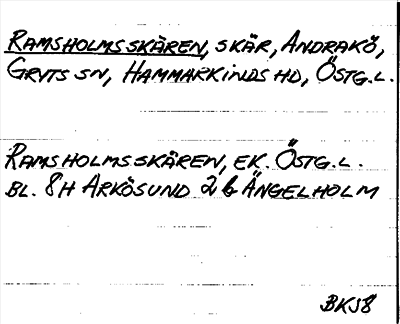 RAMSHOLMSSKÄREN, SKÄR, ANDRAKÖ,
GRYTS SN, HAMMARKINDS HD, ÖSTG.L.
RAMSHOLMSSKÄREN, EK. ÖSTG.L.
BL. 8H ARKÖSUND 2 b ÄNGELHOLM
BKS8